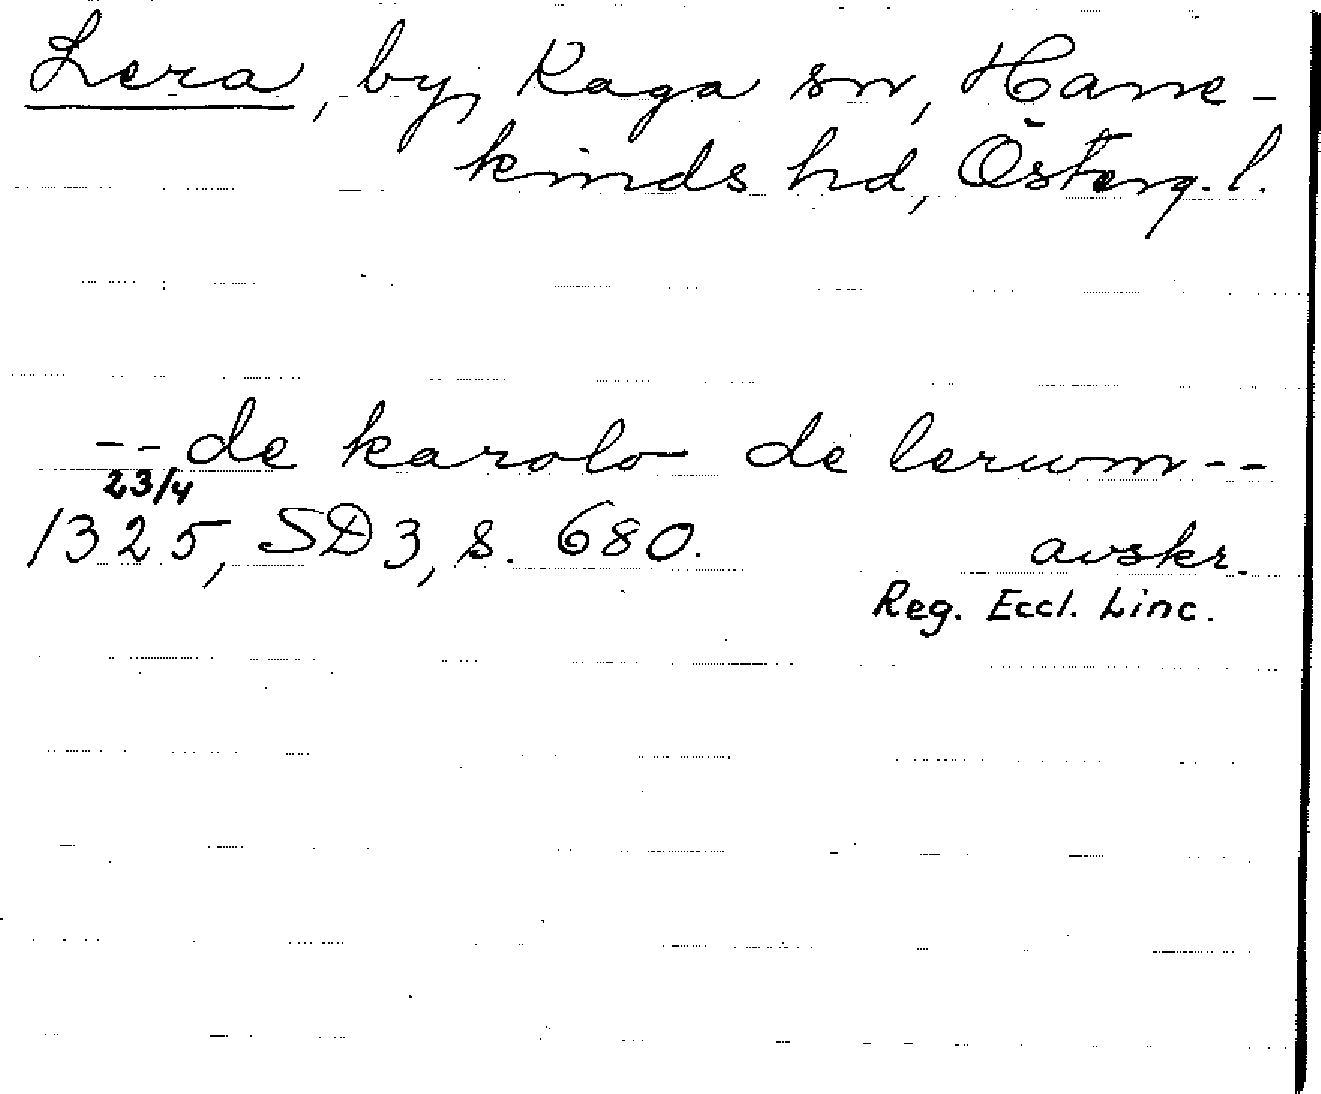 Lera, by, Kaga sn, Hane-
kinds hd, Österg. l.
-- de karolo de lerwm --
23/4
1325, SD 3, s. 680. avskr.
Reg. Eccl. Linc.